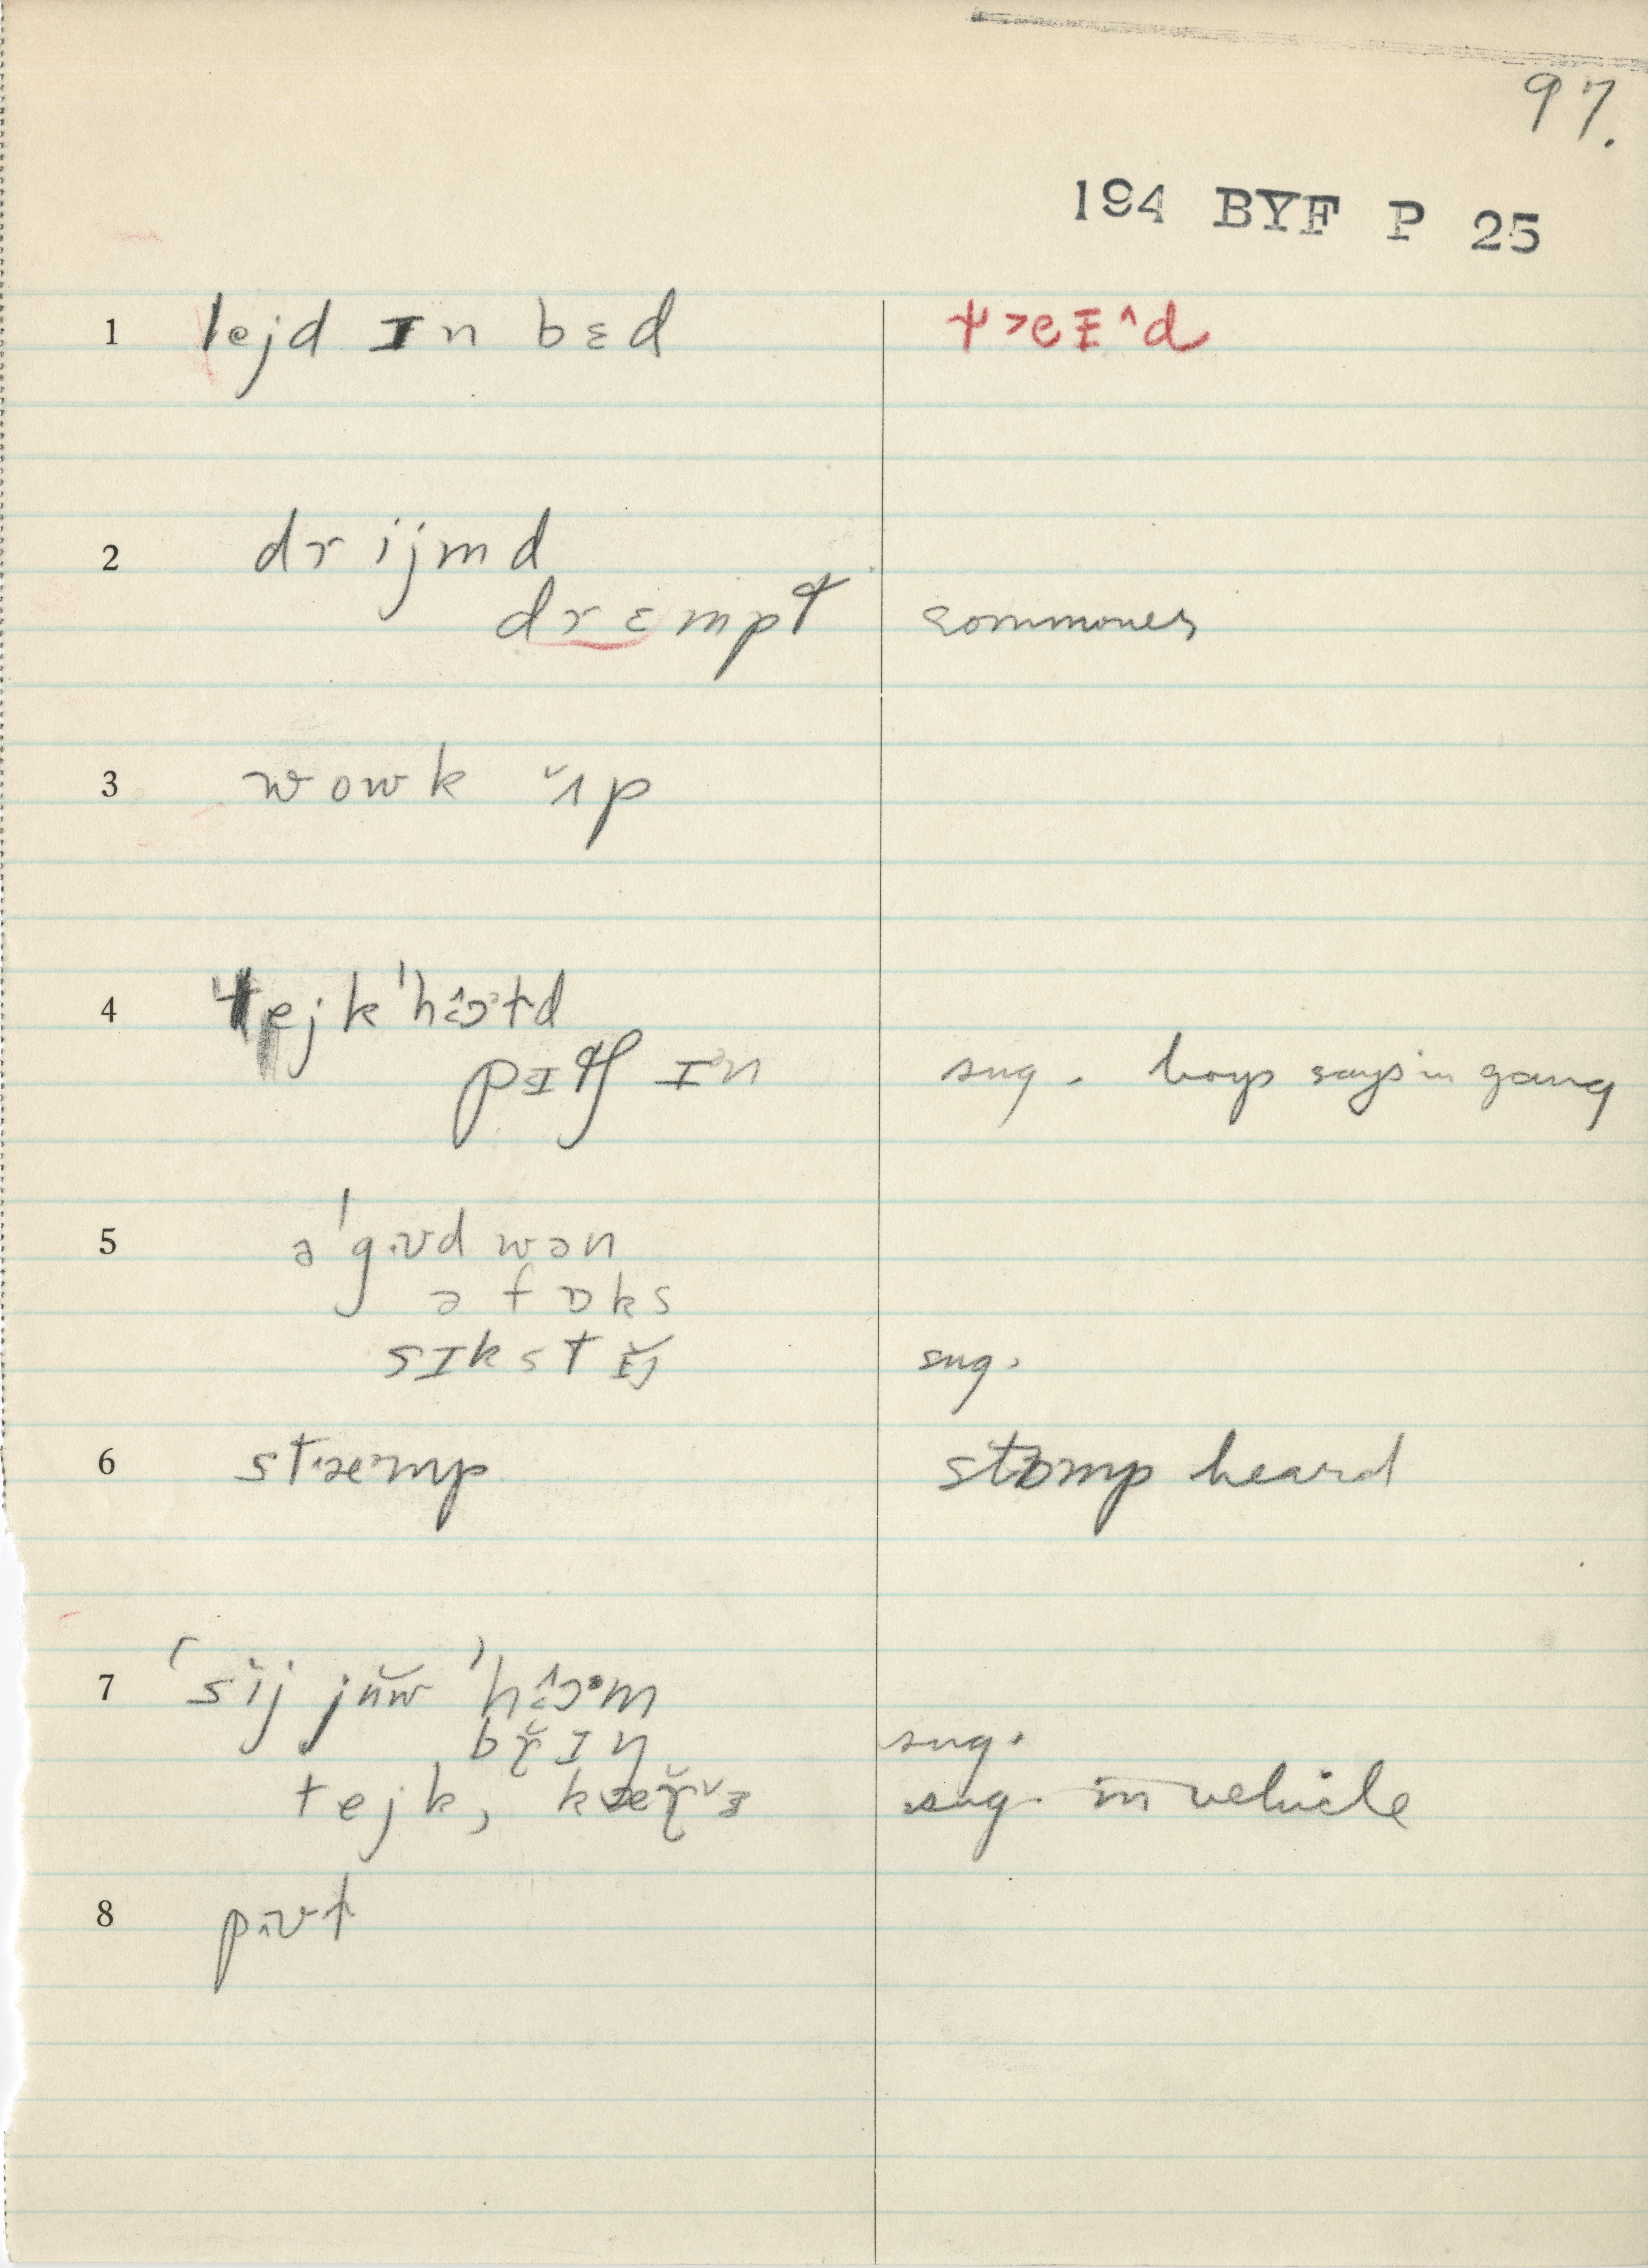 97.
194 BYF P 25
1 lejd ɪn bɛd
2 drijmd
drɛmpt commoner
3 wowk ˇʌp
4 tejk ˈhɔˑld
pɪtʃ ɪn sug. boys says in gang
5 ə ˈgʊd wən
ə fɒks
sɪkstɪ̆j sug.
6 stæmp stɒmp heard
7 ˈsij jŭw ˈhɔˑm
br̆ɪŋ sug.
tejk, kær̆ sug. in vehicle
8 pʊt